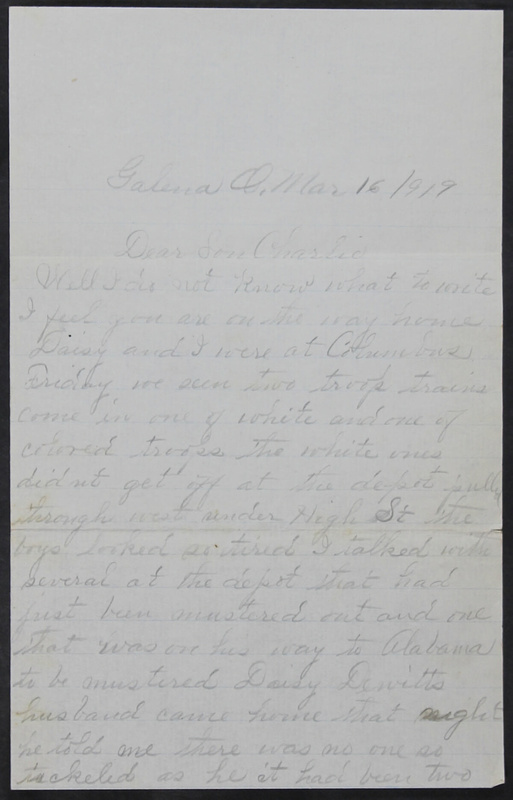 Galena O. Mar 16/919
Dear Son Charlie
Well I do not know what to write
I feel you are on the way home
Daisy and I were at Columbus
Friday we seen two troop trains
come in one of white and one of
colored troops the white ones
didnt get off at the depot
through west under High St the
boys looked so tired I talked with
several at the depot that had
just been mustered out and one
that was on his way to Alabama
to be mustered Daisy Dewitts
husband came home that night
he told me there was no one so
tickeled as he it had been two